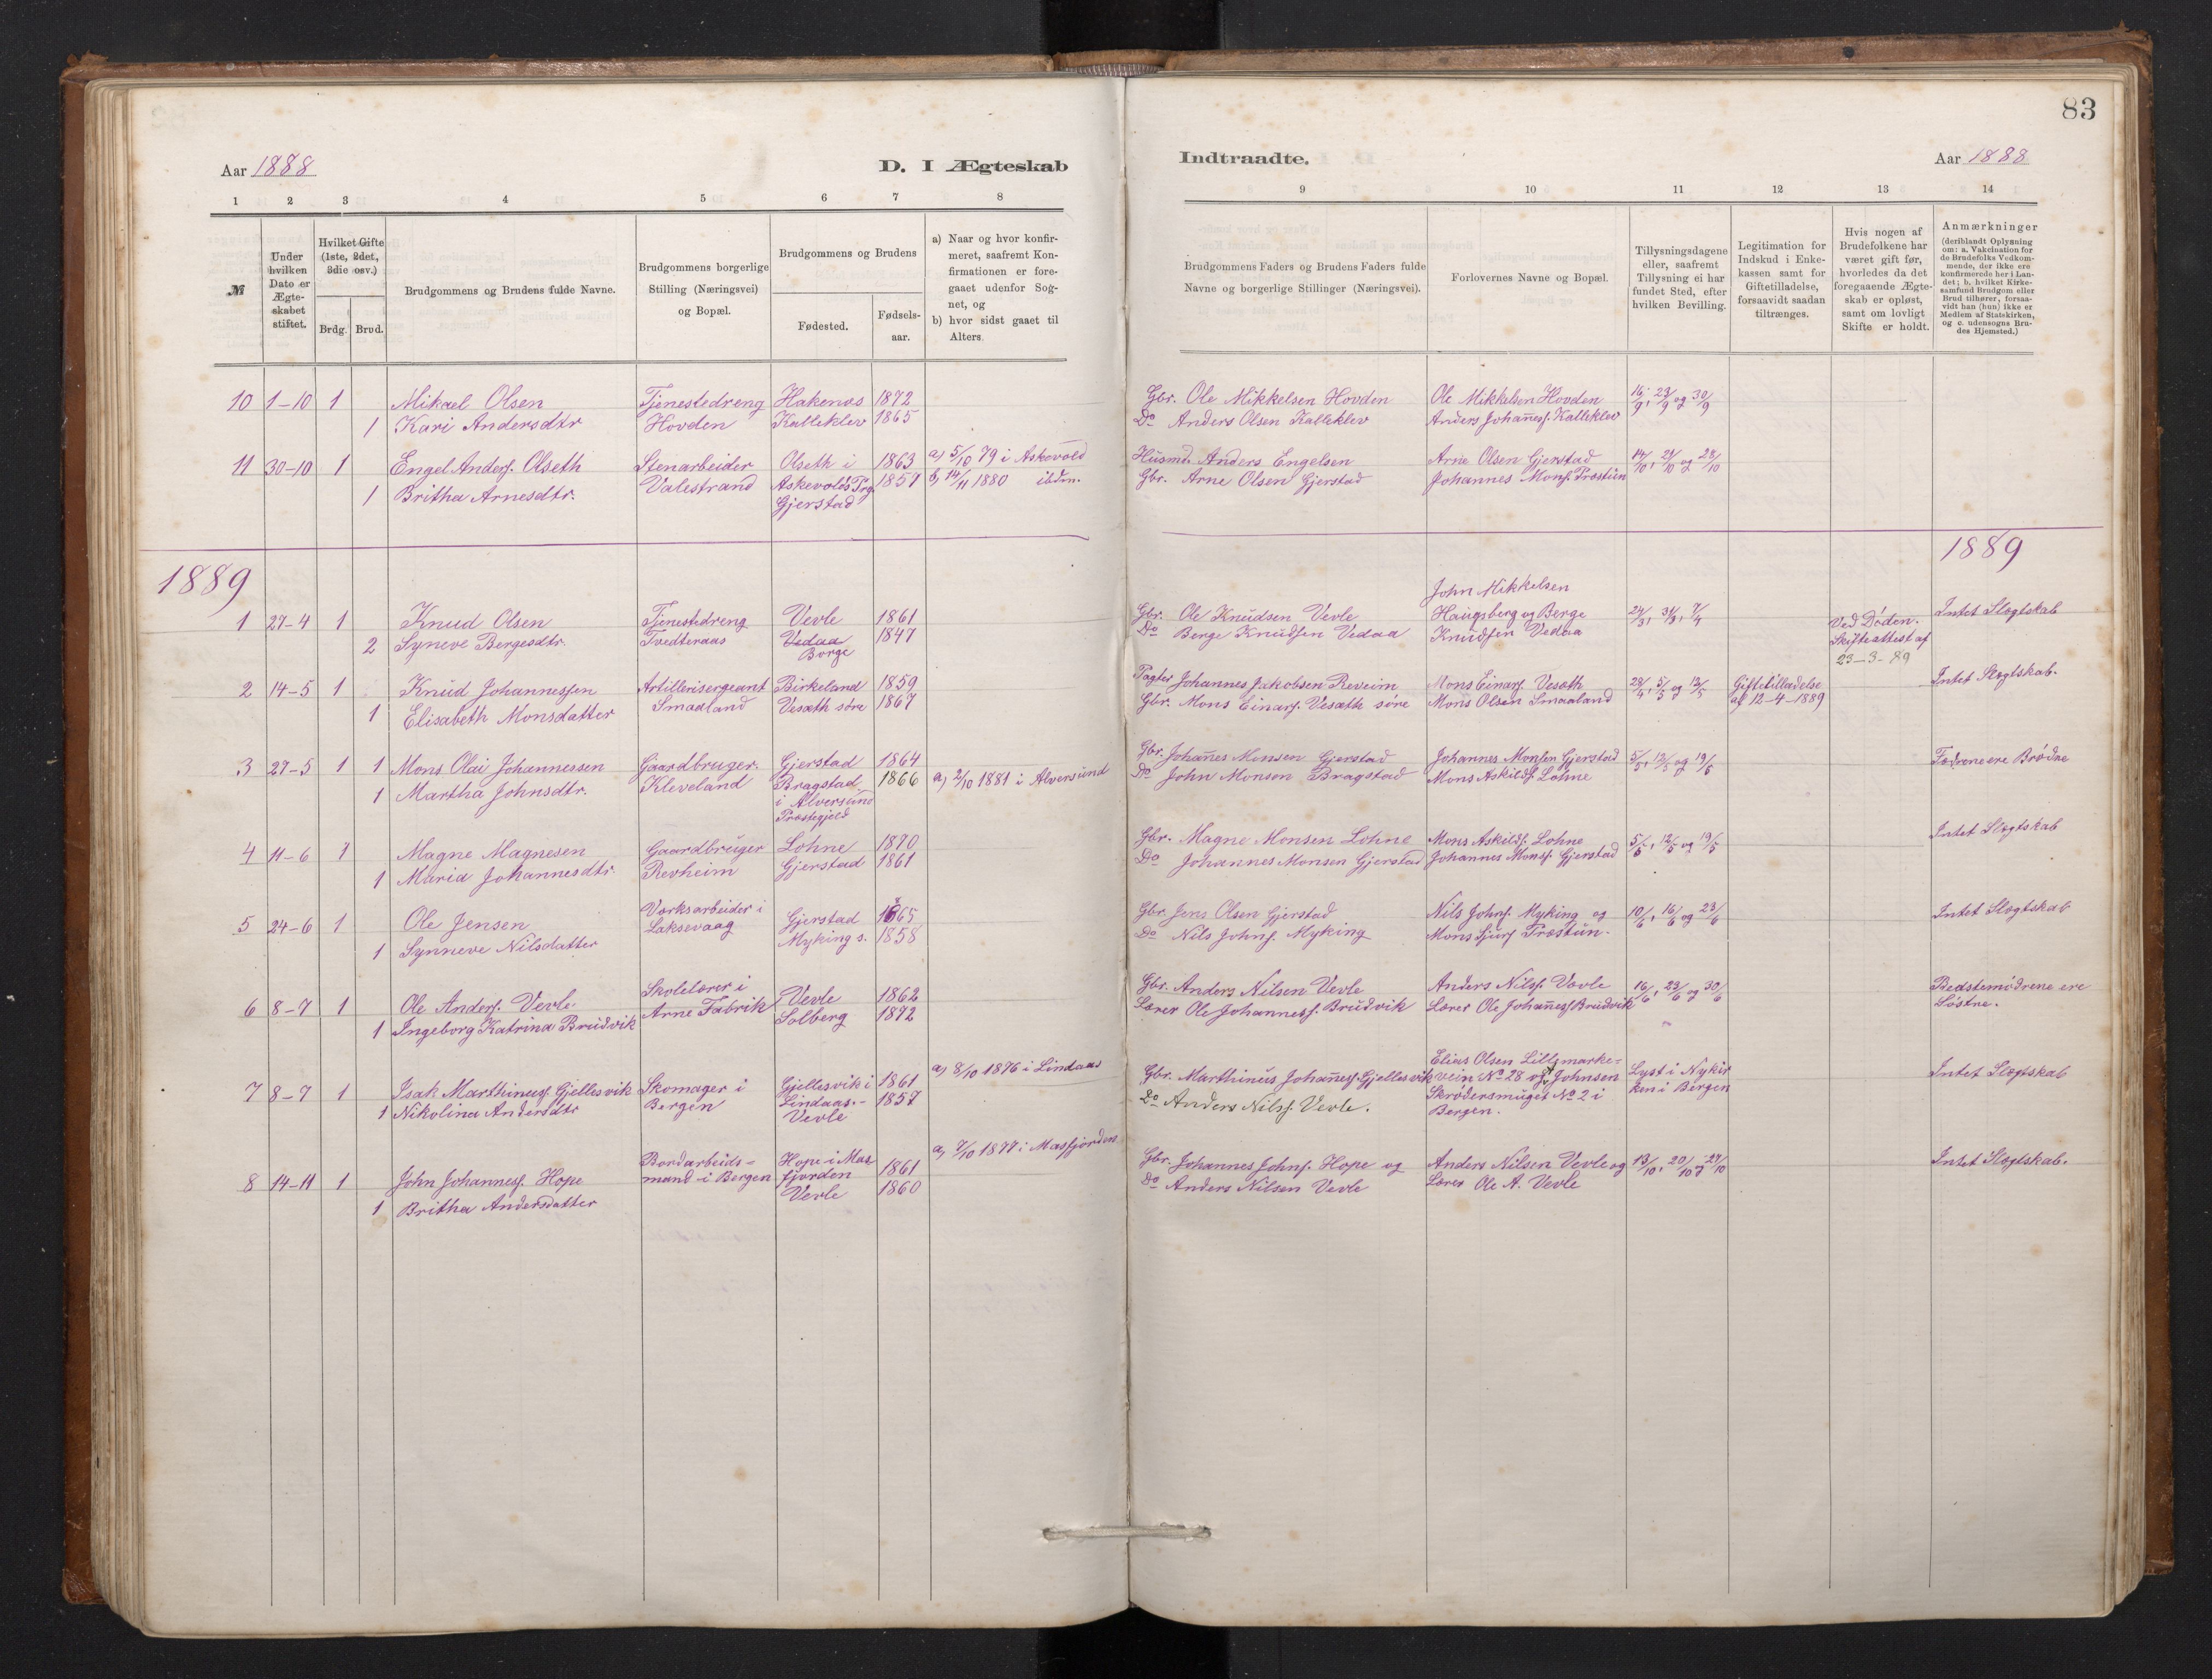 83
Aar 1888
D. I Ægteskab
Indtraadte.
Aar 1888
1 2 3 4 5 6 7 8
9 10 11 12 13 14
№
Under hvilken Dato er Ægteskabet stiftet.
Hvilket Gifte (1ste, 2det, 3die osv.)
Brdg. Brud.
Brudgommens og Brudens fulde Navne.
Brudgommens borgerlige Stilling (Næringsvei) og Bopæl.
Brudgommens og Brudens
Fødested.
Fødsels-aar.
a) Naar og hvor konfir-
meret, saafremt Kon-
firmationen er fore-
gaaet udenfor Sog-
net, og
b) hvor sidst gaaet til
Alters.
Brudgommens Faders og Brudens Faders fulde
Navne og borgerlige Stillinger (Næringsvei).
Forlovernes Navne og Bopæl.
Tillysningsdagene
eller, saafremt
Tillysning ei har
fundet Sted, efter
hvilken Bevilling.
Legitimation for
Indskud i Enke-
kassen samt for
Giftetilladelse,
forsaavidt saadan
tiltrænges.
Hvis nogen af
Brudefolkene har
været gift før,
hvorledes da det
foregaaende Ægte-
skab er opløst,
samt om lovligt
Skifte er holdt.
Anmærkninger
(deriblandt Oplysning
om: a. Vakcination for
de Brudefolks Vedkom-
mende, der ikke ere
konfirmerede her i Lan-
det; b. hvilket Kirke-
samfund Brudgom eller
Brud tilhører, forsaa-
vidt han (hun) ikke er
Medlem af Statskirken,
og c. udensogns Bru-
des Hjemsted.)
10 1-10 1 Mikael Olsen Tjenestedreng Hakenæs 1872 Gbr. Ole Mikkelsen Hovden Ole Mikkelsen Hovden 16/9, 23/9 og 30/9
1 Kari Andersdtr Hovden Kalleklev 1865 Do Anders Olsen Kalleklev Anders Johanes. Kalleklev
11 30-10 1 Engel Anders. Olseth Stenarbeider Olseth i 1863 a) 5/10 79 i Askevold Husmd. Anders Engelsen Arne Olsen Gjerstad 14/10, 21/10 og 28/10
1 Britha Arnesdtr. Valestrand Askevolds Prg. 1857 b) 14/11 1880 ibdm. Gbr. Arne Olsen Gjerstad Johannes Mons. Præstun
Gjerstad
1889
1889
John Mikkelsen
1 27-4 1 Knud Olsen Tjenestedreng Vevle 1861 Gbr. Ole Knudsen Vevle Haugsberg og Berge 24/3, 31/3, 7/4 Ved Døden. Intet Slægtskab
2 Syneve Bergesdtr. Tvedteraas Vedaa 1847 Do Berge Knudsen Vedaa Knudsen Vedaa Skifteattest af
Borge 23-3-89
2 14-5 1 Knud Johannessen Artillerisergeant Birkeland 1859 Pagter Johannes Jakobsen Reveim Mons Einars. Vesæth 28/4, 5/5 og 12/5 Giftetilladelse Intet Slægtskab.
1 Elisabeth Monsdatter Smaaland Vesæth søre 1867 Gbr. Mons Einars. Vesæth søre Mons Olsen Smaaland af 12-4-1889
3 27-5 1 1 Mons Olai Johannessen Gaardbruger. Gjerstad 1864 Gbr. Johanes Monsen Gjerstad Johannes Monsen Gjerstad 5/5, 12/5 og 19/5 Fædrene ere Brødre
1 Martha Johnsdtr. Kleveland Bragstad 1866 a) 2/10 1881 i Alversund Do John Monsen Bragstad Mons Askilds. Lohne
i Alversund
Præstegjeld
4 11-6 1 Magne Magnesen Gaardbruger Lohne 1870 Gbr. Magne Monsen Lohne Mons Askilds. Lohne 5/5, 12/5 og 19/5 Intet Slægtskab
1 Maria Johannesdtr. Revheim Gjerstad 1861 Do Johannes Monsen Gjerstad Johannes Mons. Gjerstad
5 24-6 1 Ole Jensen Værksarbeider i Gjerstad 1865 Gbr. Jens Olsen Gjerstad Nils Johns. Myking og 10/6, 16/6 og 23/6 Intet Slægtskab
1 Synneve Nilsdatter Laksevaag Myking s. 1858 Do Nils Johns. Myking Mons Sjurs Præstun.
6 8-7 1 Ole Anders. Vevle Skolelærer i Vevle 1862 Gbr. Anders Nilsen Vevle Anders Nils. Vævle 16/6, 23/6 og 30/6 Bedstemødrene ere
1 Ingeborg Katrina Brudvik Arne Fabrik Solberg 1872 Lærer Ole Johannes. Brudvik Lærer Ole Johanes Brudvik Søstre.
7 8-7 1 Isak Marthinus. Gjellesvik Skomager i Gjellesvik i 1861 a) 8/10 1876 i Lindaas Gbr. Marthinus Johanes. Gjellesvik Elias Olsen Lille marke- Lyst i Nykir Intet Slægtskab
1 Nikolina Andersdtr Bergen Lindaas.- 1857 Do Anders Nils. Vevle. vein № 28 og Johnsen ken i Bergen
Vevle Skrødersmuget № 2 i
Bergen.
8 14-11 1 John Johannes. Hope Bordarbeids- Hope i Mas 1861 a) 7/10 1877 i Masfjorden Gbr. Johannes Johns. Hope og Anders Nilsen Vevle og 13/10, 20/10, 27/10 Intet Slægtskab.
1 Britha Andersdatter mand i Bergen fjorden 1860 Do Anders Nilsen Vevle Lærer Ole A. Vevle
Vevle